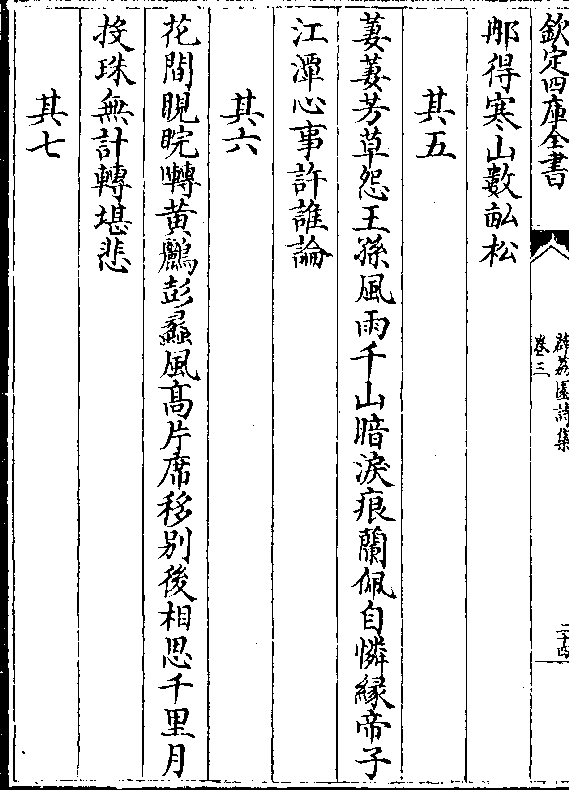 欽定四庫全書
薜荔園詩集
卷三
二十四
那得寒山數畝松
其五
萋萋芳草怨王孫風雨千山暗淚痕蘭佩自憐緣帝子
江潭心事許誰論
其六
花間睍睆囀黃鸝彭蠡風高片席移別後相思千里月
投珠無計轉堪悲
其七